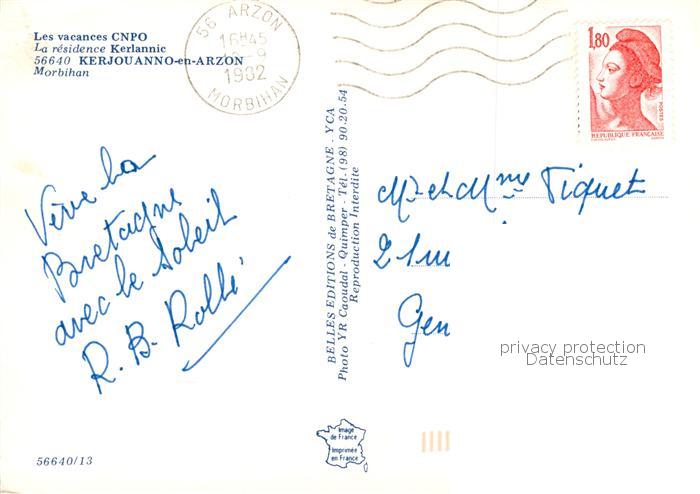 Les vacances CNPO
La résidence Kerlannic
56640 KERJOUANNO-en-ARZON
Morbihan
56 ARZON
16H45
9
1982
MORBIHAN
1,80
POSTES
REPUBLIQUE FRANÇAISE
Vive la
Bretagne
avec le Soleil
R. B. Rollé
BELLES EDITIONS de BRETAGNE - YCA
Photo YR Caoudal - Quimper - Tél. (98) 90.20.54
Reproduction Interdite
Mr et Mme Piquet
Gen
privacy protection
Datenschutz
Image
de France
Imprimée
en France
56640/13